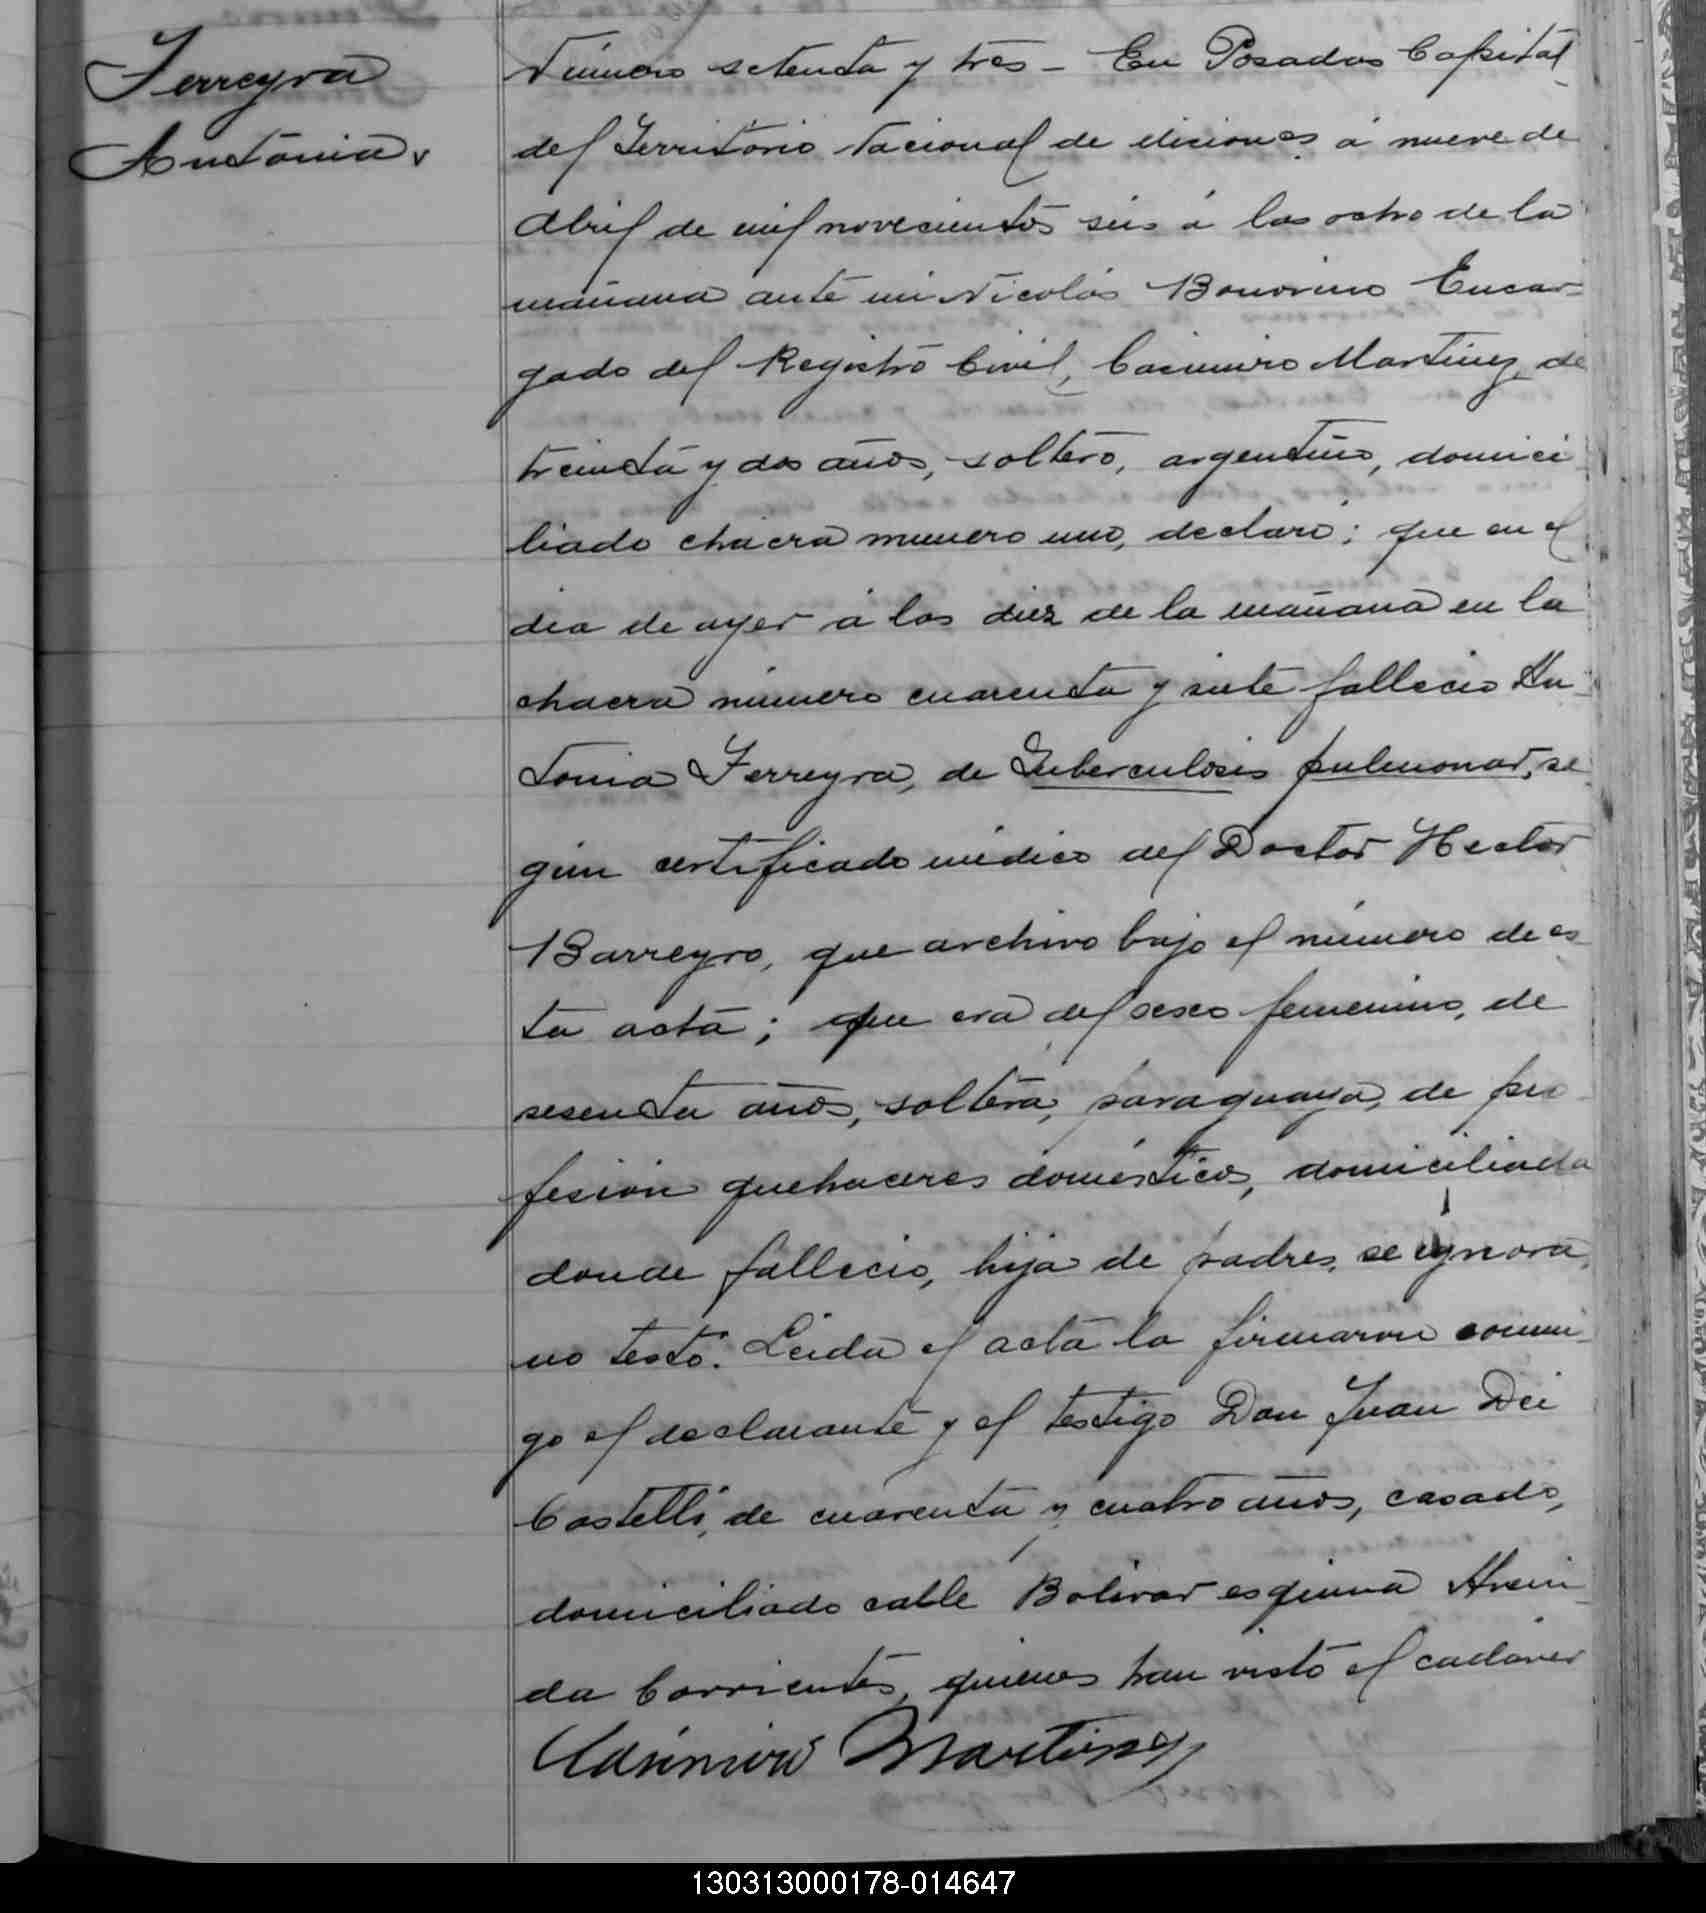 Ferreyra
Antonia
Número setenta y tres - En Posadas Capital
del Territorio Nacional de Misiones á nueve de
Abril de mil novecientos seis á las ocho de la
mañana ante mi Nicolás Bonorino Encar-
gado del Registro Civil, Casimiro Martinez, de
treinta y dos años, soltero, argentino, domici
liado chacra numero uno, declaró; que en el
dia de ayer á las diez de la mañana en la
chacra número cuarenta y siete fallecio An-
tonia Ferreyra, de Tuberculosis pulmonar, se
gún certificado médico del Doctor Hector
Barreyro, que archivo bajo el número de es-
ta acta; que era del sexo femenino, de
sesenta años, soltera, paraguaya, de pro-
fesión quehaceres domésticos, domiciliada
donde fallecio, hija de padres, se ignora,
no testó. Leida el acta la firmaron conmi-
go el declarante y el testigo Don Juan Dei
Castelli, de cuarenta y cuatro años, casado,
domiciliado calle Bolívar esquina Aveni-
da Corrientes, quienes han visto el cadáver
Casimiro Martinez
130313000178-014647